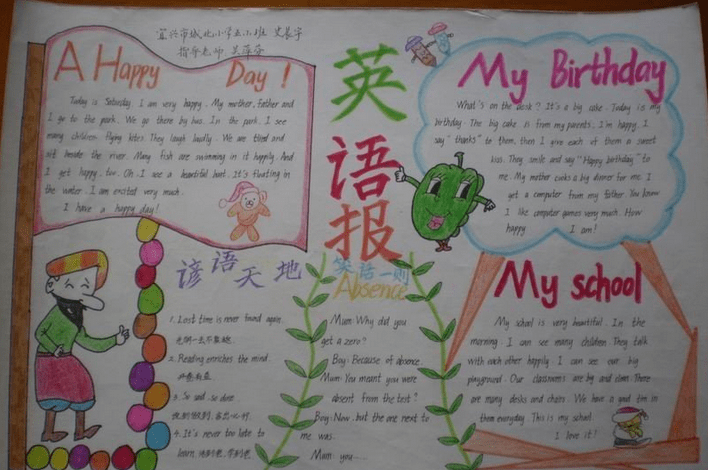 宜兴市城北小学五
指导老师
A Happy Day!
Today is Saturday. I am very happy. My mother, father and
I go to the park. We go there by bus. In the park, I see
many children flying kites. They laugh loudly. We are tired and
sit beside the river. Many fish are swimming in it happily. And
I get happy, too. Oh, I see a beautiful boat. It's floating in
the water. I am excited very much.
I have a happy day!
英语报
My Birthday
What's on the desk? It's a big cake. Today is my
birthday. The big cake is from my parents, I'm happy. I
say "thanks" to them, then I give each of them a sweet
kiss. They smile and say "Happy birthday" to
me. My mother cooks a big dinner for me. I
get a computer from my father. You know
I like computer games very much. How
happy I am!
谚语天地
1. Lost time is never found again.
2. Reading enriches the mind.
开卷有益
3. So said, so done.
说到做到,言出必行.
4. It's never too late to
learn. 活到老,学到老.
笑话一则
Absence
Mum: Why did you
get a zero?
Boy: Because of absence.
Mum: You meant you were
absent from the test?
Boy: Now. but the one next to
me was.
Mum: you....
My school
My school is very beautiful. In the
morning. I can see many children. They talk
with each other happily. I can see our big
playground. Our classrooms are big and clean. There
are many desks and chairs. We have a good time in
them everyday. This is my school.
I love it!